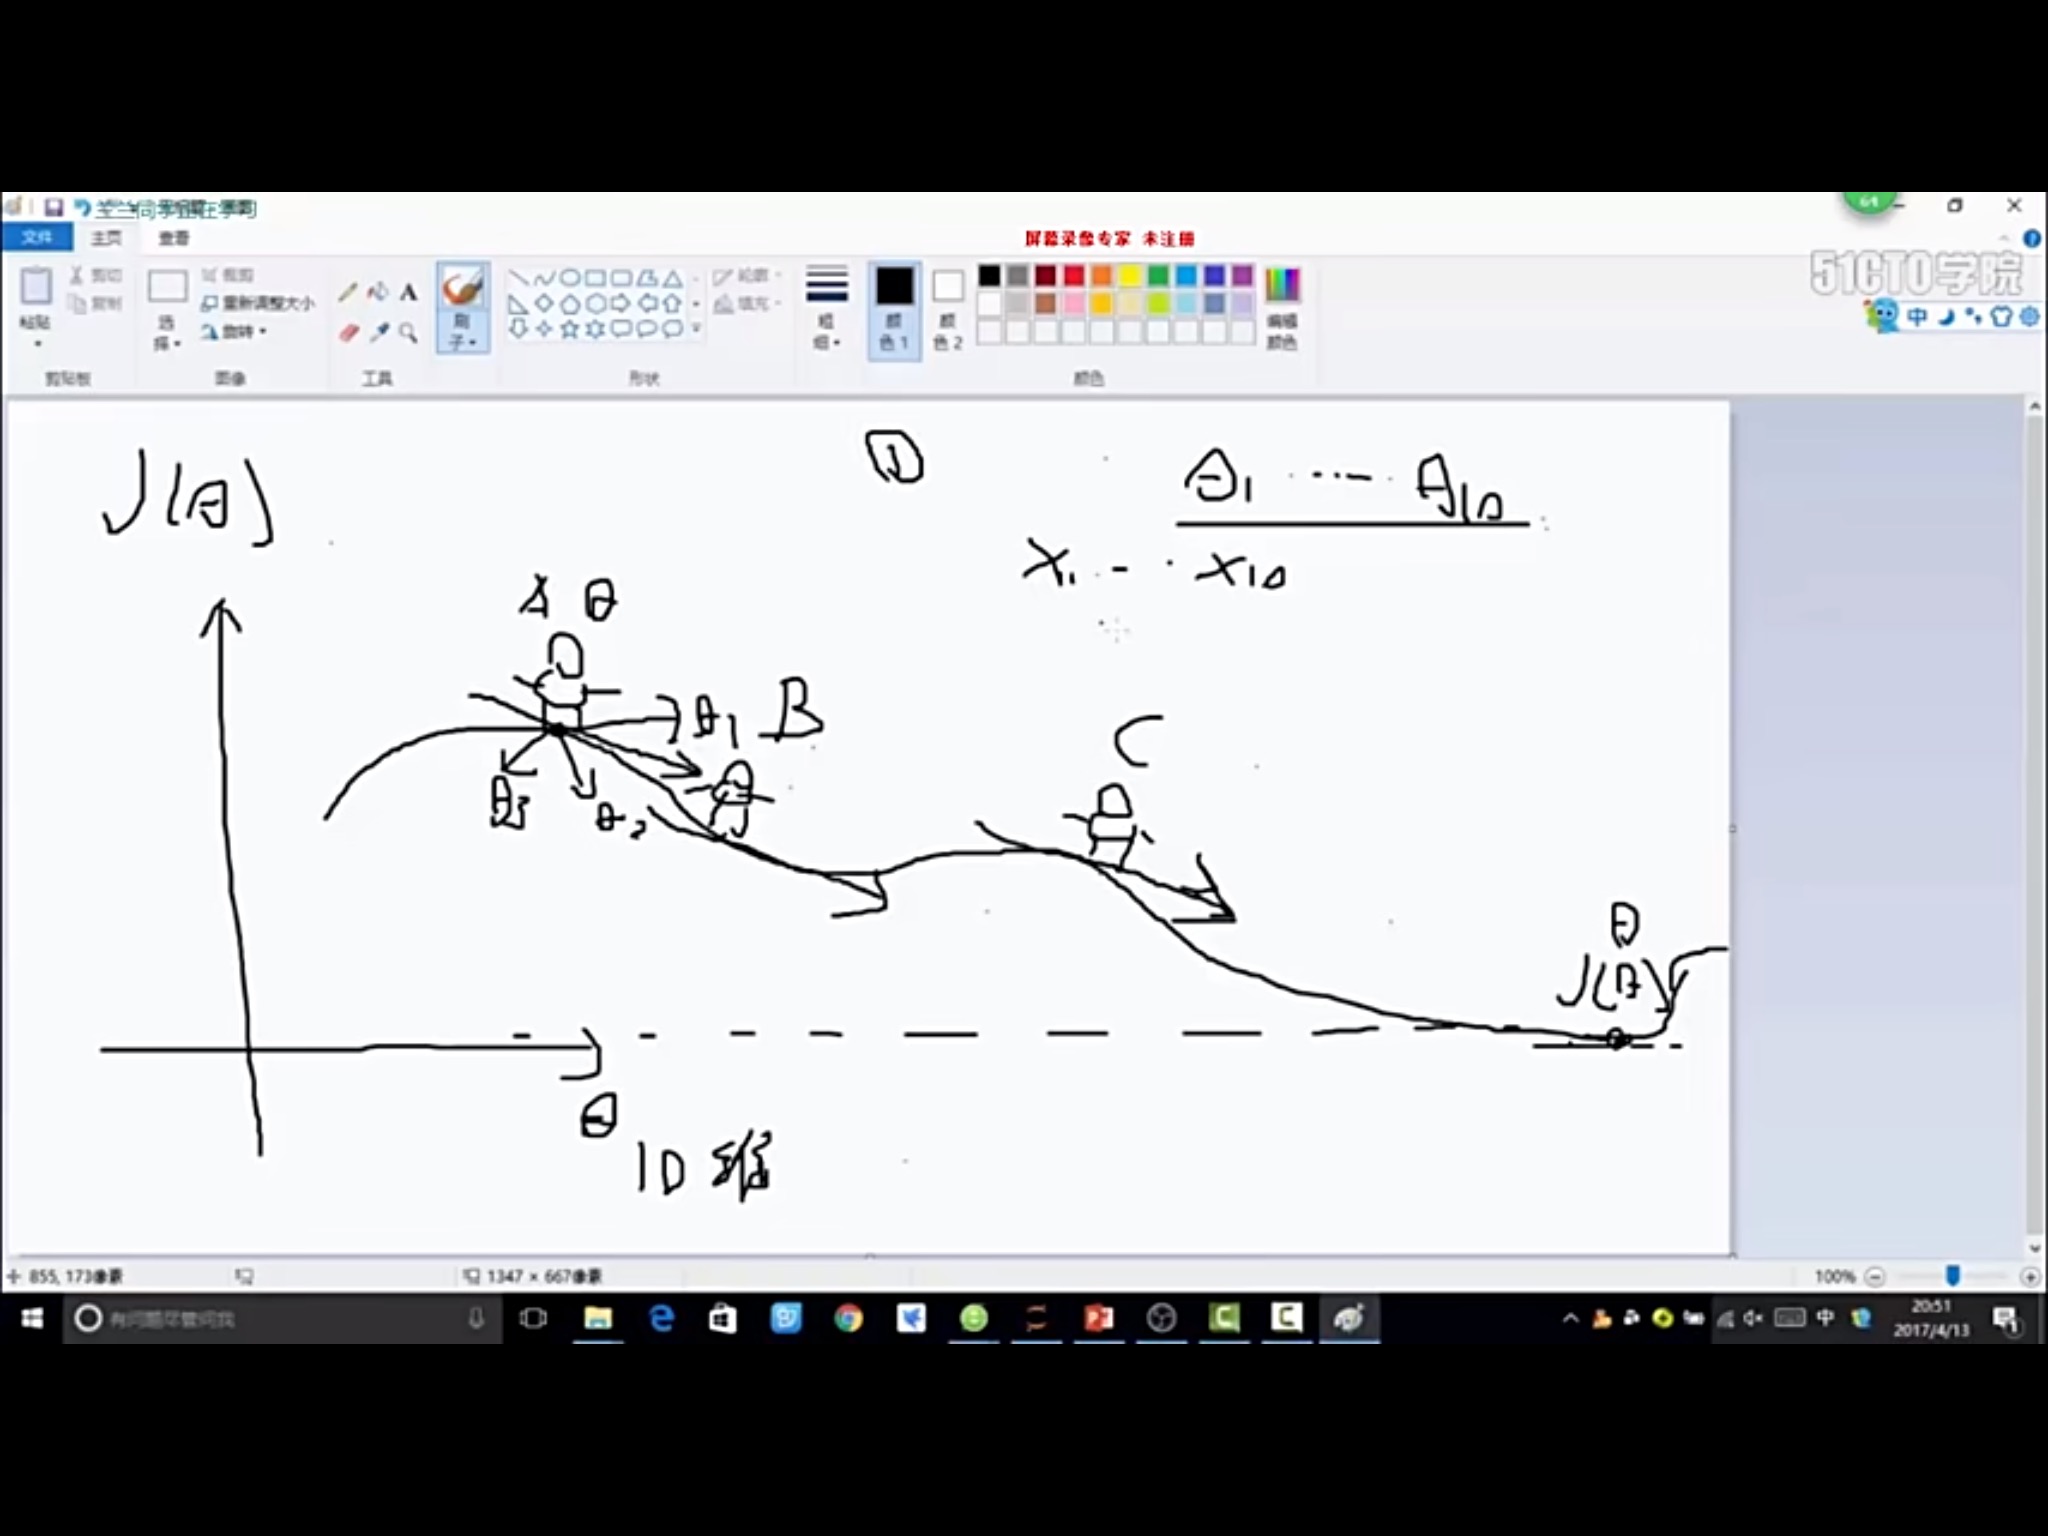 文件 主页 查看
屏幕录像专家 未注册
64
51CTO学院
粘贴
剪切
复制
剪贴板
选择
裁剪
重新调整大小
旋转
图像
A
工具
刷子
形状
轮廓
填充
粗细
颜色1
颜色2
编辑颜色
颜色
中
J(θ)
①
θ1 ······ θ10
X1 - · X10
A θ
θ1 B
θ3 θ2
C
θ
J(θ)
θ
10维
855, 173像素
1347 × 667像素
100%
有问题尽管问我
中
20:51
2017/4/13
1